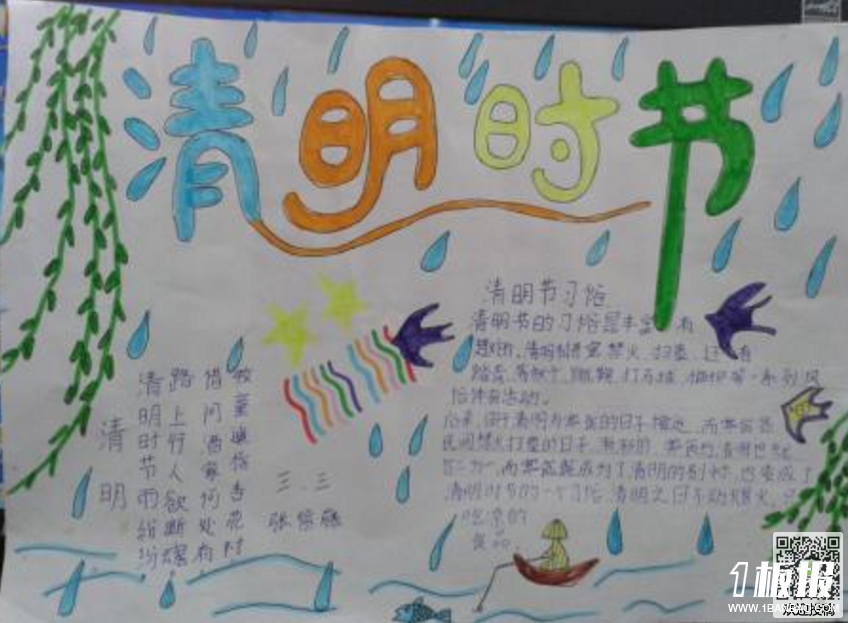 清明时节
清明节习俗
清明节的习俗是丰富有
趣的,清明节讲究禁火、扫墓,还有
踏青、荡秋千、蹴鞠、打马球、插柳等一系列风
俗体育活动。
后来,由于清明与寒食的日子接近,而寒食是
民间禁火扫墓的日子,渐渐的,寒食与清明也就
合二为一,而寒食既成为了清明的别称,也变成了
清明时节的一个习俗,清明之日不动烟火,只
吃凉的
食品。
清明
清明时节雨纷纷
路上行人欲断魂
借问酒家何处有
牧童遥指杏花村
三、三
张
1板报
WWW.1BANBAO.COM
欢迎投稿